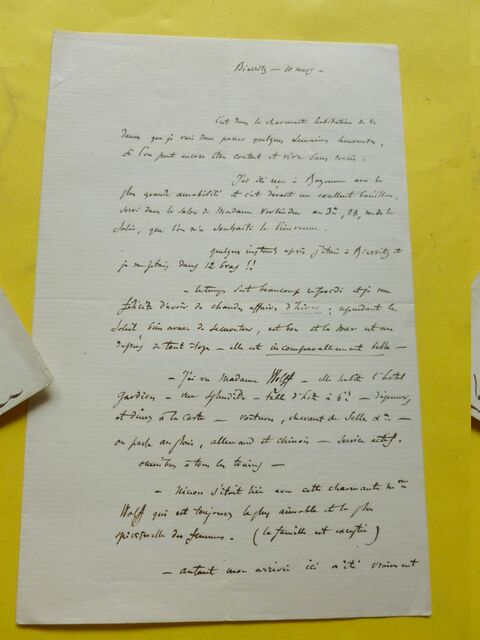 Biarritz — 10 mars —
C'est dans la charmante habitation de ces
dames que je vais donc passer quelques semaines heureuses,
si l'on peut encore être content et vivre sans soucis.
J'ai été reçu à Bayonne avec la
plus grande amabilité et c'est devant un excellent bouillon,
servi dans le salon de Madame
que l'on m'a souhaité la bienvenue.
quelques instants après j'étais à Biarritz et
je me jetais dans 12 bras !!
— le temps s'est beaucoup refroidi et je me
félicite d'avoir de chaudes affaires d'hiver ; cependant le
soleil bien avare de se montrer, est bon et la mer est au
dessus de tout éloge — elle est incomparablement belle —
— J'ai vu Madame Wolff — elle habite l'hôtel
Gardères — vue splendide — table d'hôte à 6f — déjeuners
et dîners à la carte — voitures, chevaux de selle &a —
on parle anglais, allemand et chinois — service actif.
omnibus à tous les trains —
— Ninon s'était liée avec cette charmante Mme
Wolff qui est toujours la plus aimable et la plus
spirituelle des femmes. (la famille est exceptée)
— autant mon arrivée ici a été vraiment